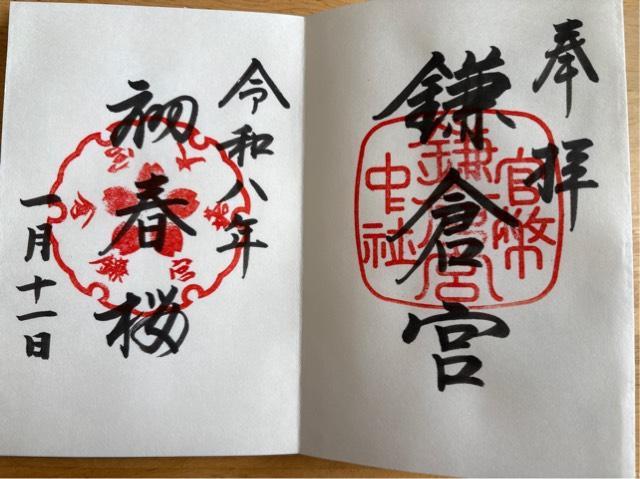 奉拝
鎌倉宮
官幣
鎌倉宮
中社
令和八年
初春桜
一月十一日